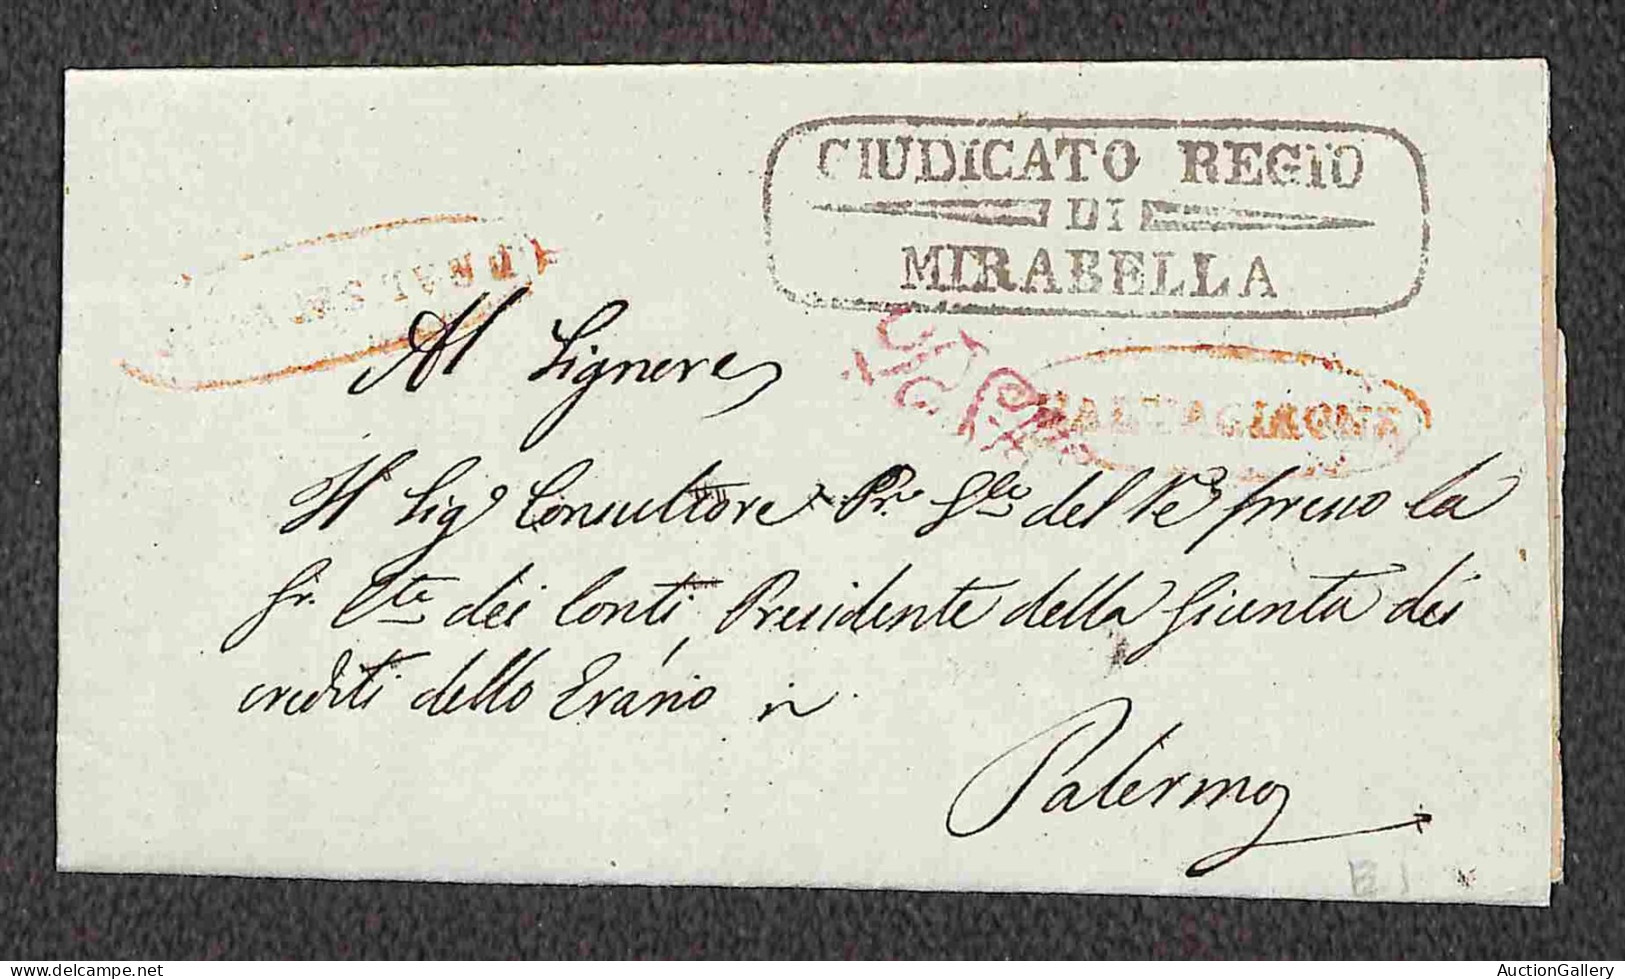 GIUDICATO REGIO
DI
MIRABELLA
REAL SER
CALTAGIRONE
Al Signore
Il Sig.r Consultore Pr. Gle del Re presso la
Gr. Cte dei Conti, Presidente della Giunta dei
crediti dello Erario in
Palermo
delcampe.net
AuctionGallery